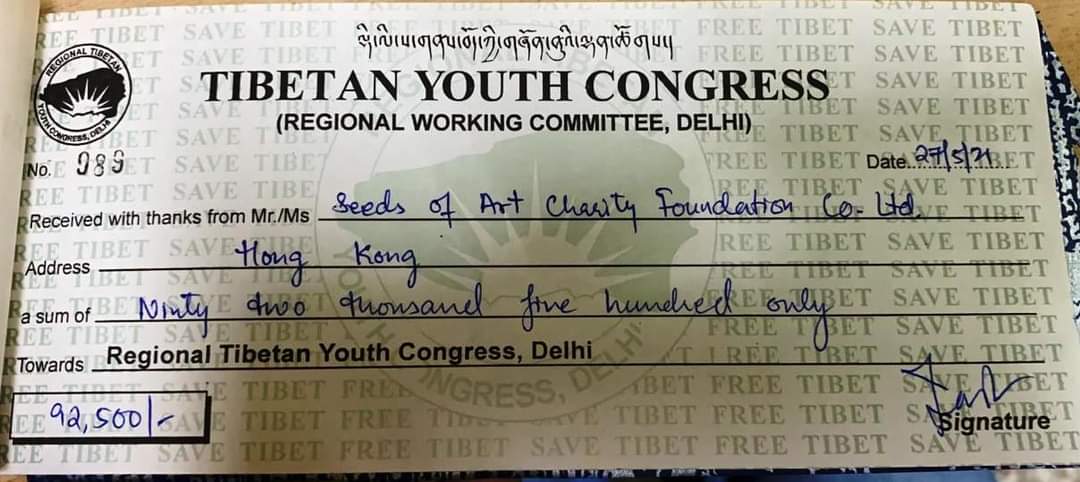 TIBETAN YOUTH CONGRESS
(REGIONAL WORKING COMMITTEE, DELHI)
REGIONAL TIBETAN YOUTH CONGRESS, DELHI
No. 989
Date. 27/5/21
Received with thanks from Mr./Ms Seeds of Art Charity Foundation Co. Ltd.
Address Hong Kong
a sum of Ninty two thousand five hundred only
Towards Regional Tibetan Youth Congress, Delhi
92,500/-
Signature
FREE TIBET SAVE TIBET